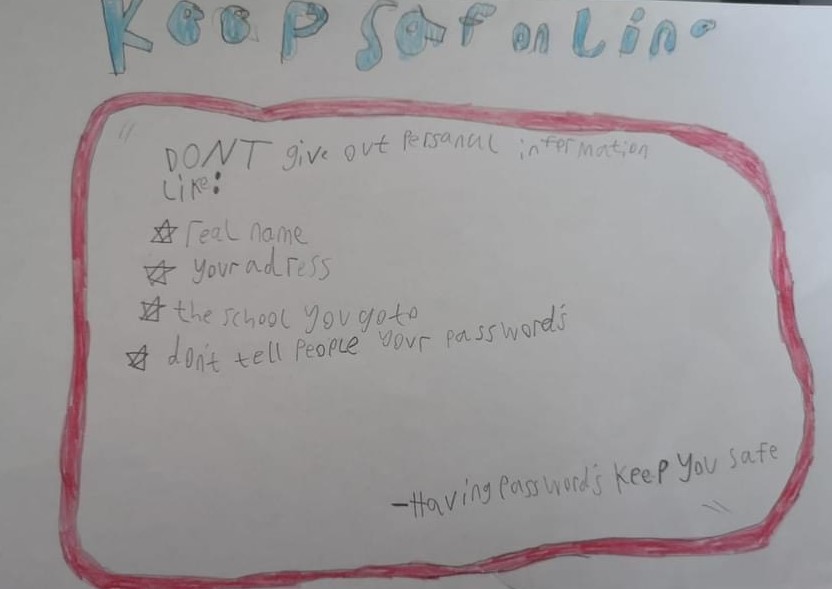 Keep Saf onLine
"DONT give out Persanal information
Like:
☆ real name
☆ your adress
☆ the school you go to
☆ don't tell People your password's
-Having Password's KeeP You safe"